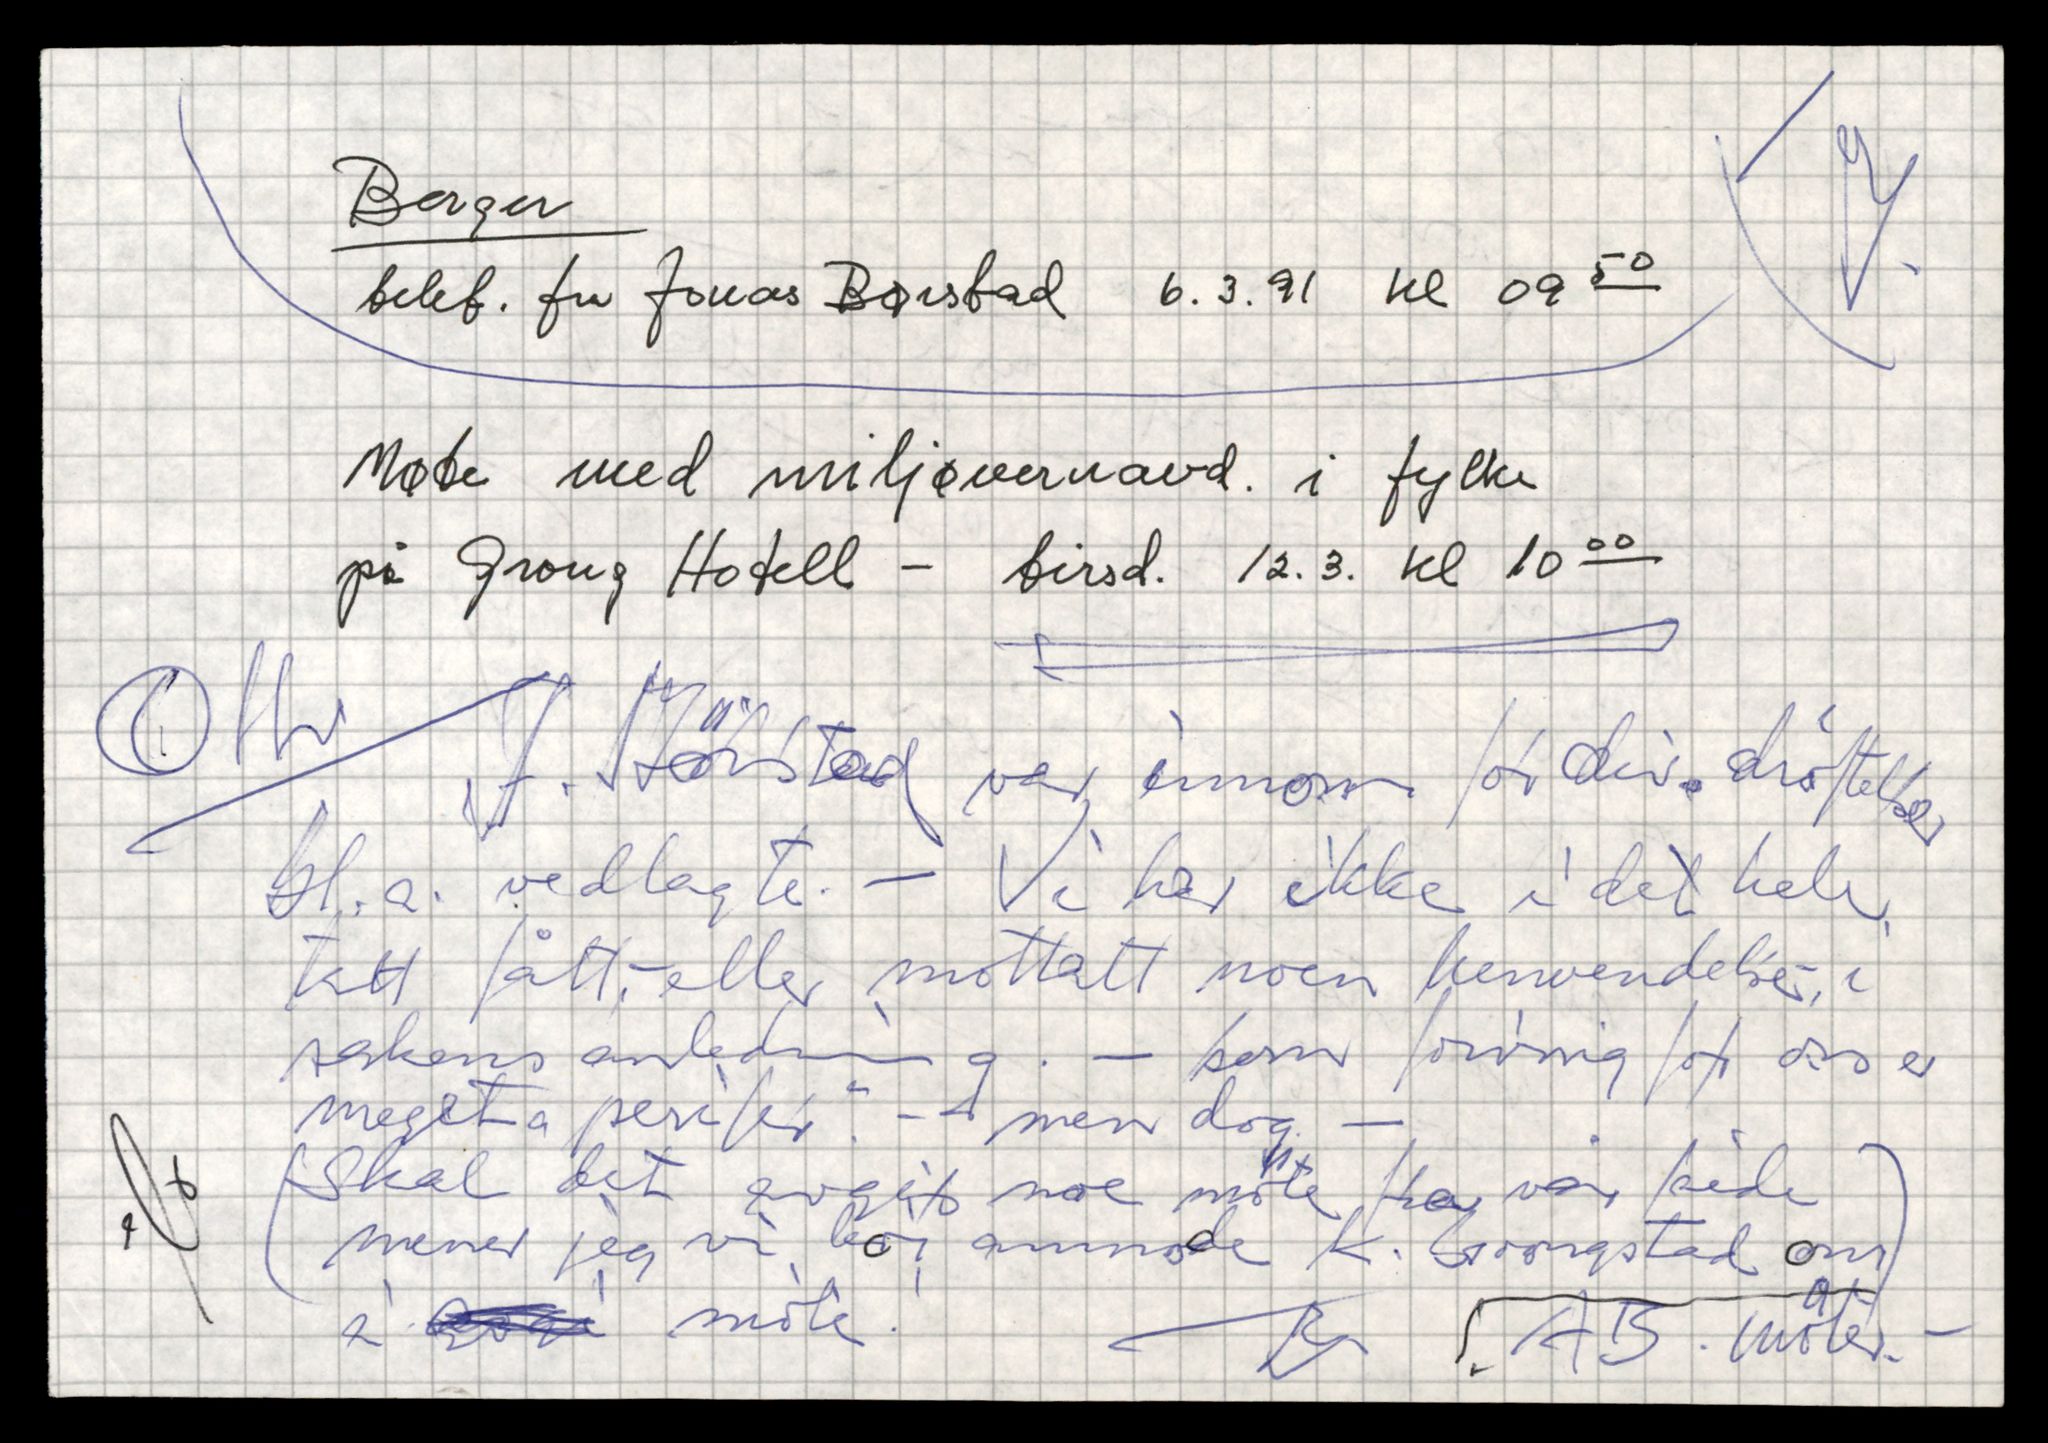 Berger
telef. fra Jonas Børstad 6.3.91 kl 09 50
Møte med miljøvernavd. i fylke
på Grong Hotell - tirsd. 12.3. kl 10 00
J. Börstad var innom for div. dröftelser
bl.a. vedlagte. - Vi har ikke i det hele
tatt fått, eller mottatt noen henvendelser, i
sakens anledning. - som forövrig for oss er
meget "perifer" - men dog. -
(Skal det avgis noe möte fra vår side
mener jeg vi bör anmode K. om
å möte!
AB. möter. -